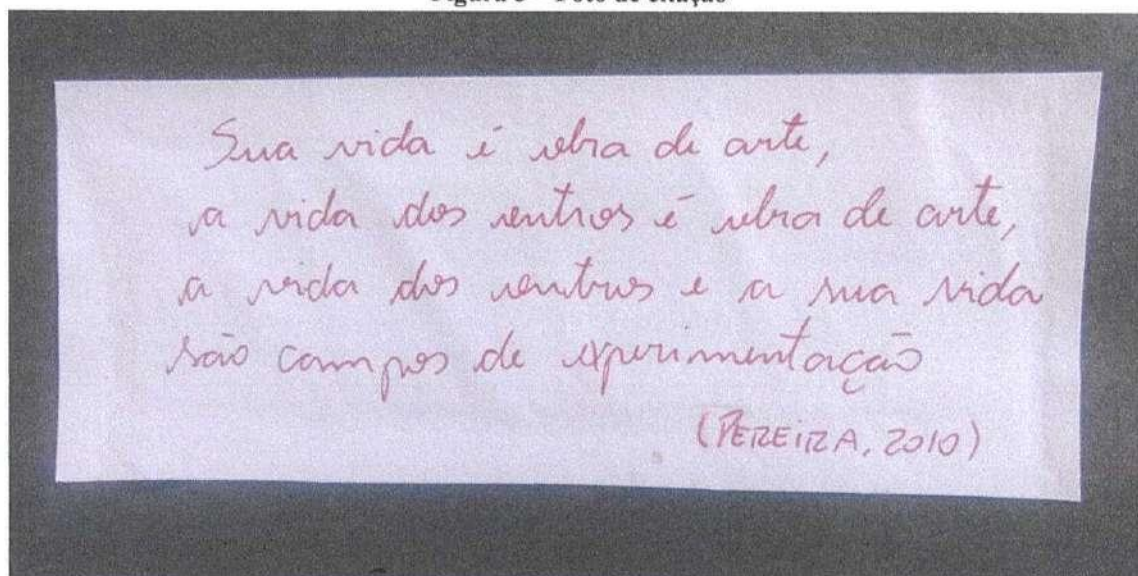 Sua vida é obra de arte,
a vida dos outros é obra de arte,
a vida dos outros e a sua vida
são campos de experimentação
(PEREIRA, 2010)